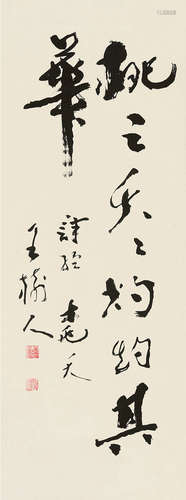 桃之夭〻灼灼其
華
詩經 桃夭
王 人